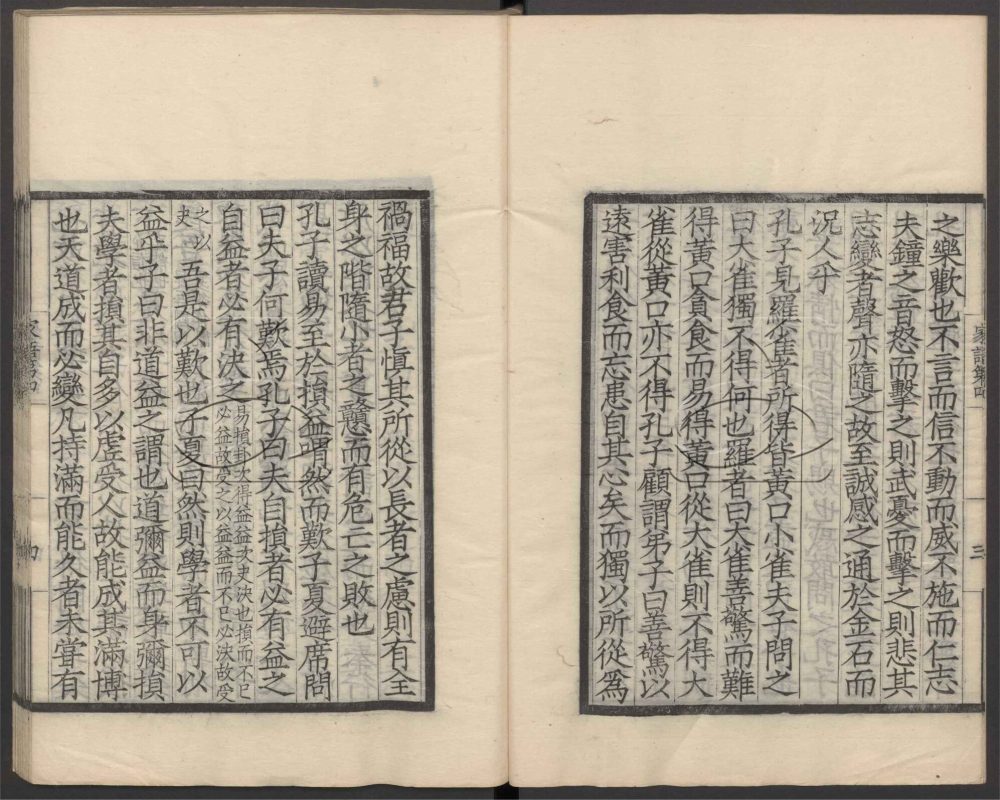 之樂歡也不言而信不動而威不施而仁志
夫鐘之音怒而擊之則武憂而擊之則悲其
志變者聲亦隨之故至誠感之通於金石而
況人乎
孔子見羅雀者所得皆黃口小雀夫子問之
曰大雀獨不得何也羅者曰大雀善驚而難
得黃口貪食而易得黃口從大雀則不得大
雀從黃口亦不得孔子顧謂弟子曰善驚以
遠害利食而忘患自其心矣而獨以所從為
禍福故君子慎其所從以長者之慮則有全
身之階隨小者之戇而有危亡之敗也
孔子讀易至於損益喟然而歎子夏避席問
曰夫子何歎焉孔子曰夫自損者必有益之
自益者必有決之易損卦次得益益次夬夬決也損而不已
必益故受之以益益而不已必決故受
之以
夬吾是以歎也子夏曰然則學者不可以
益乎子曰非道益之謂也道彌益而身彌損
夫學者損其自多以虛受人故能成其滿博
也天道成而必變凡持滿而能久者未嘗有
家語第四
三